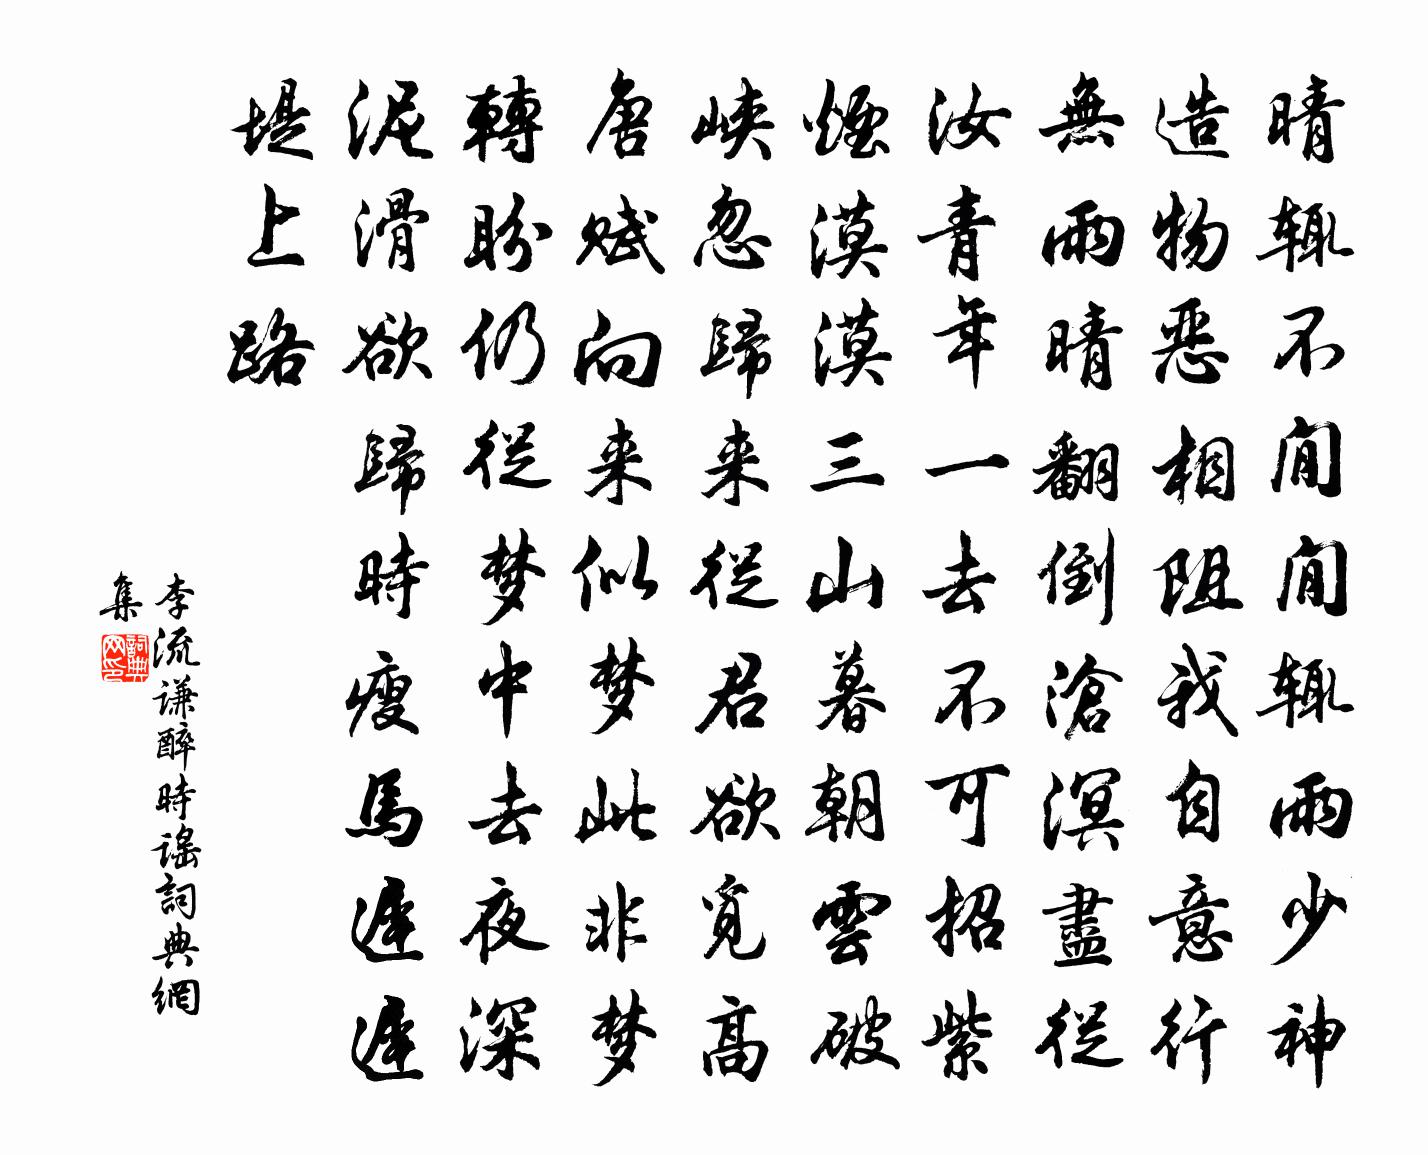 晴辄不閒閒辄雨少神
造物恶相阻我自意行
無雨晴翻倒滄溟盡從
汝青年一去不可招紫
煙漠漠三山暮朝雲破
峽忽歸来從君欲覓高
唐赋向来似梦此非梦
轉盼仍從梦中去夜深
泥滑欲歸時瘦馬遲遲
堤上路
李流谦醉時謠詞典網
集
詞典网印